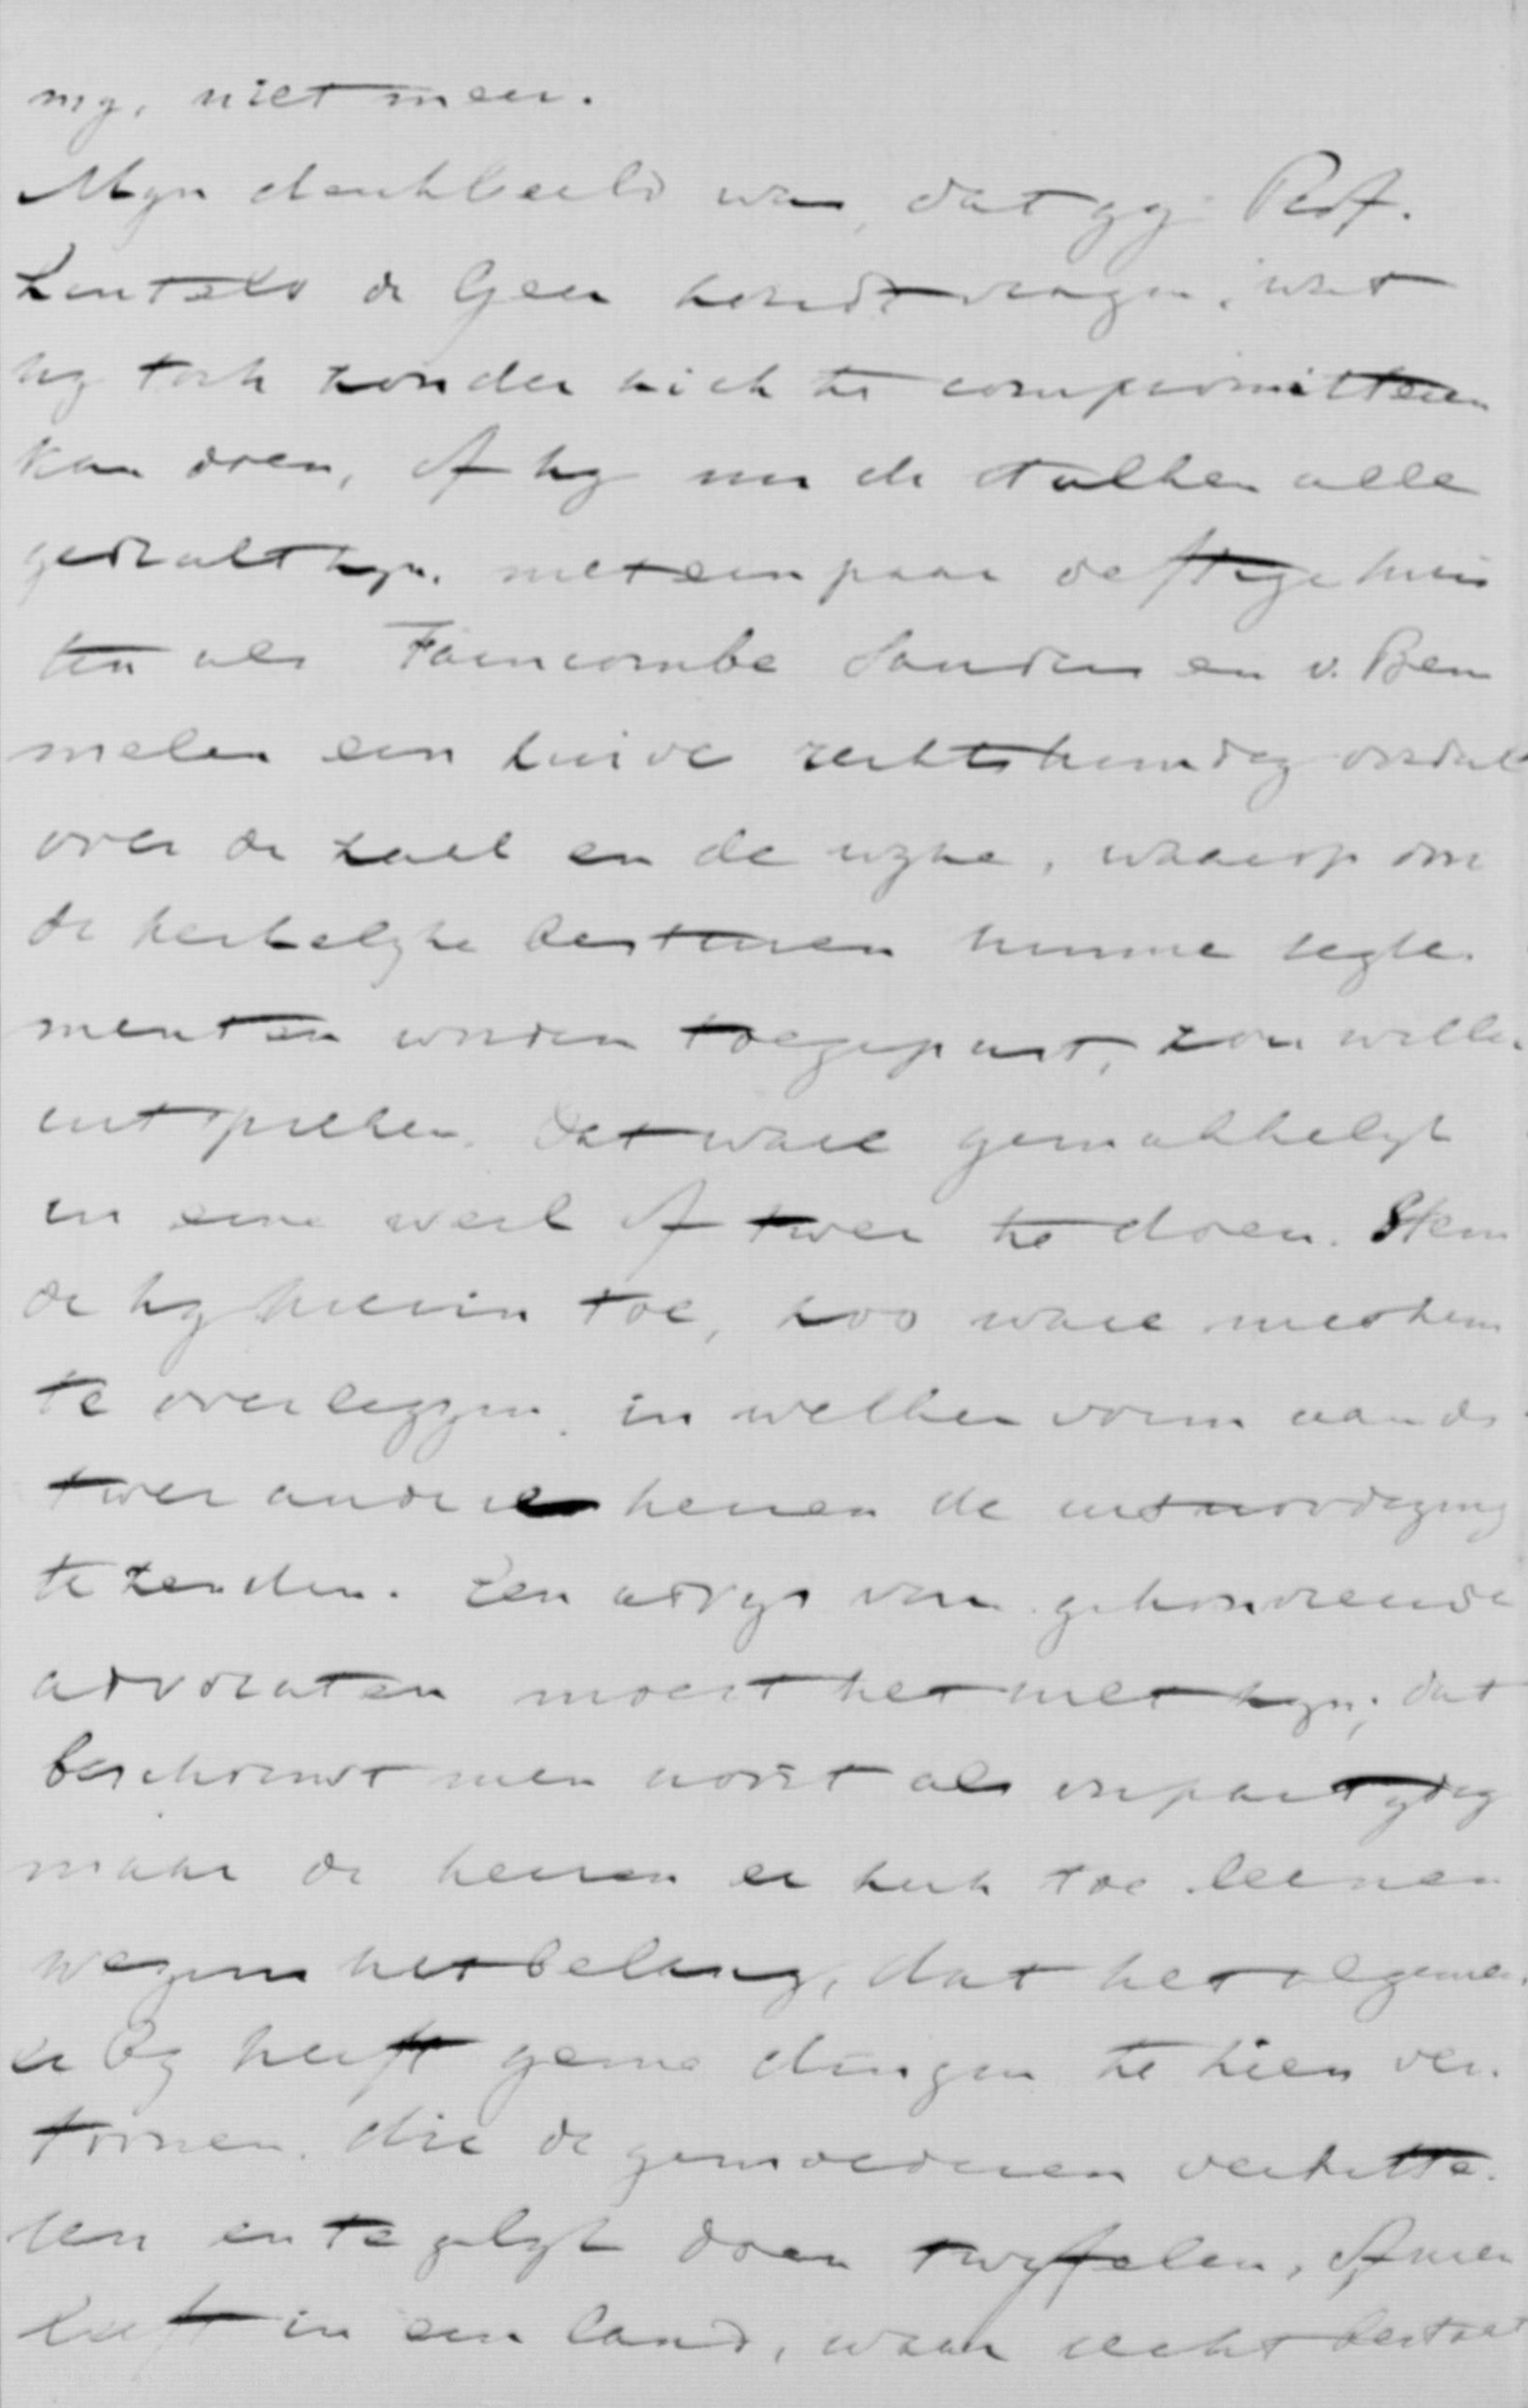 my, niet meer.
Myn denkbeeld was, dat gy Prof.
Lintelo de Geer kondt vragen, wat
hy toch zonder zich te compromitteeren
kan doen, of hy nu de stukken alle
gedrukt zyn, met een paar deftige juris
ten als Faure en v. Bem
melen een zuiver rechtskundig oordeel
over de zaak en de wyze, waarop door
de kerkelyke besturen hunne regle-
menten worden toegepast, zou willen
uitspreken. Dat ware gemakkelyk
in eene week of twee te doen. Stem
de hy hierin toe, zoo ware met hem
te overleggen, in welken vorm aan de
twee andere heeren de uitnoodiging
te zenden. Een advys van gehonoreerde
advocaten moest het niet zyn; dat
beschouwt men nooit als onpartydig
maar de heeren er zich toe leenen
wegens het belang, dat het algemeen
er by heeft geene dingen te zien ver-
toonen, die de gemoederen verbitte-
ren en te gelyk doen twyfelen, of men
leeft in een land, waar recht bestaat